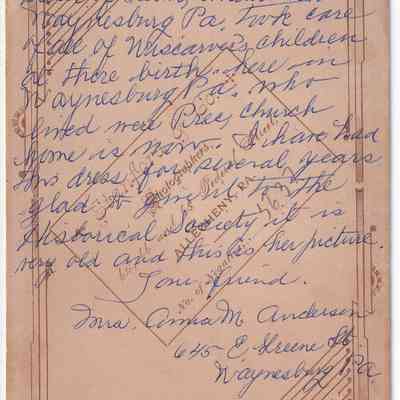 Waynesburg Pa, took care
of all of Niscarver's children
at there birth. here in
Waynesburg Pa. who
lived were Pres, church
home is now. I have had
this dress for several years
glad to give it to the
Historical Society it is
very old and this is her picture.
Your friend.
Mrs. Anna M Anderson
645 E. Greene St.
Waynesburg Pa.
Photographers,
Federal Street,
ALLEGHENY, PA.
No. of Negative